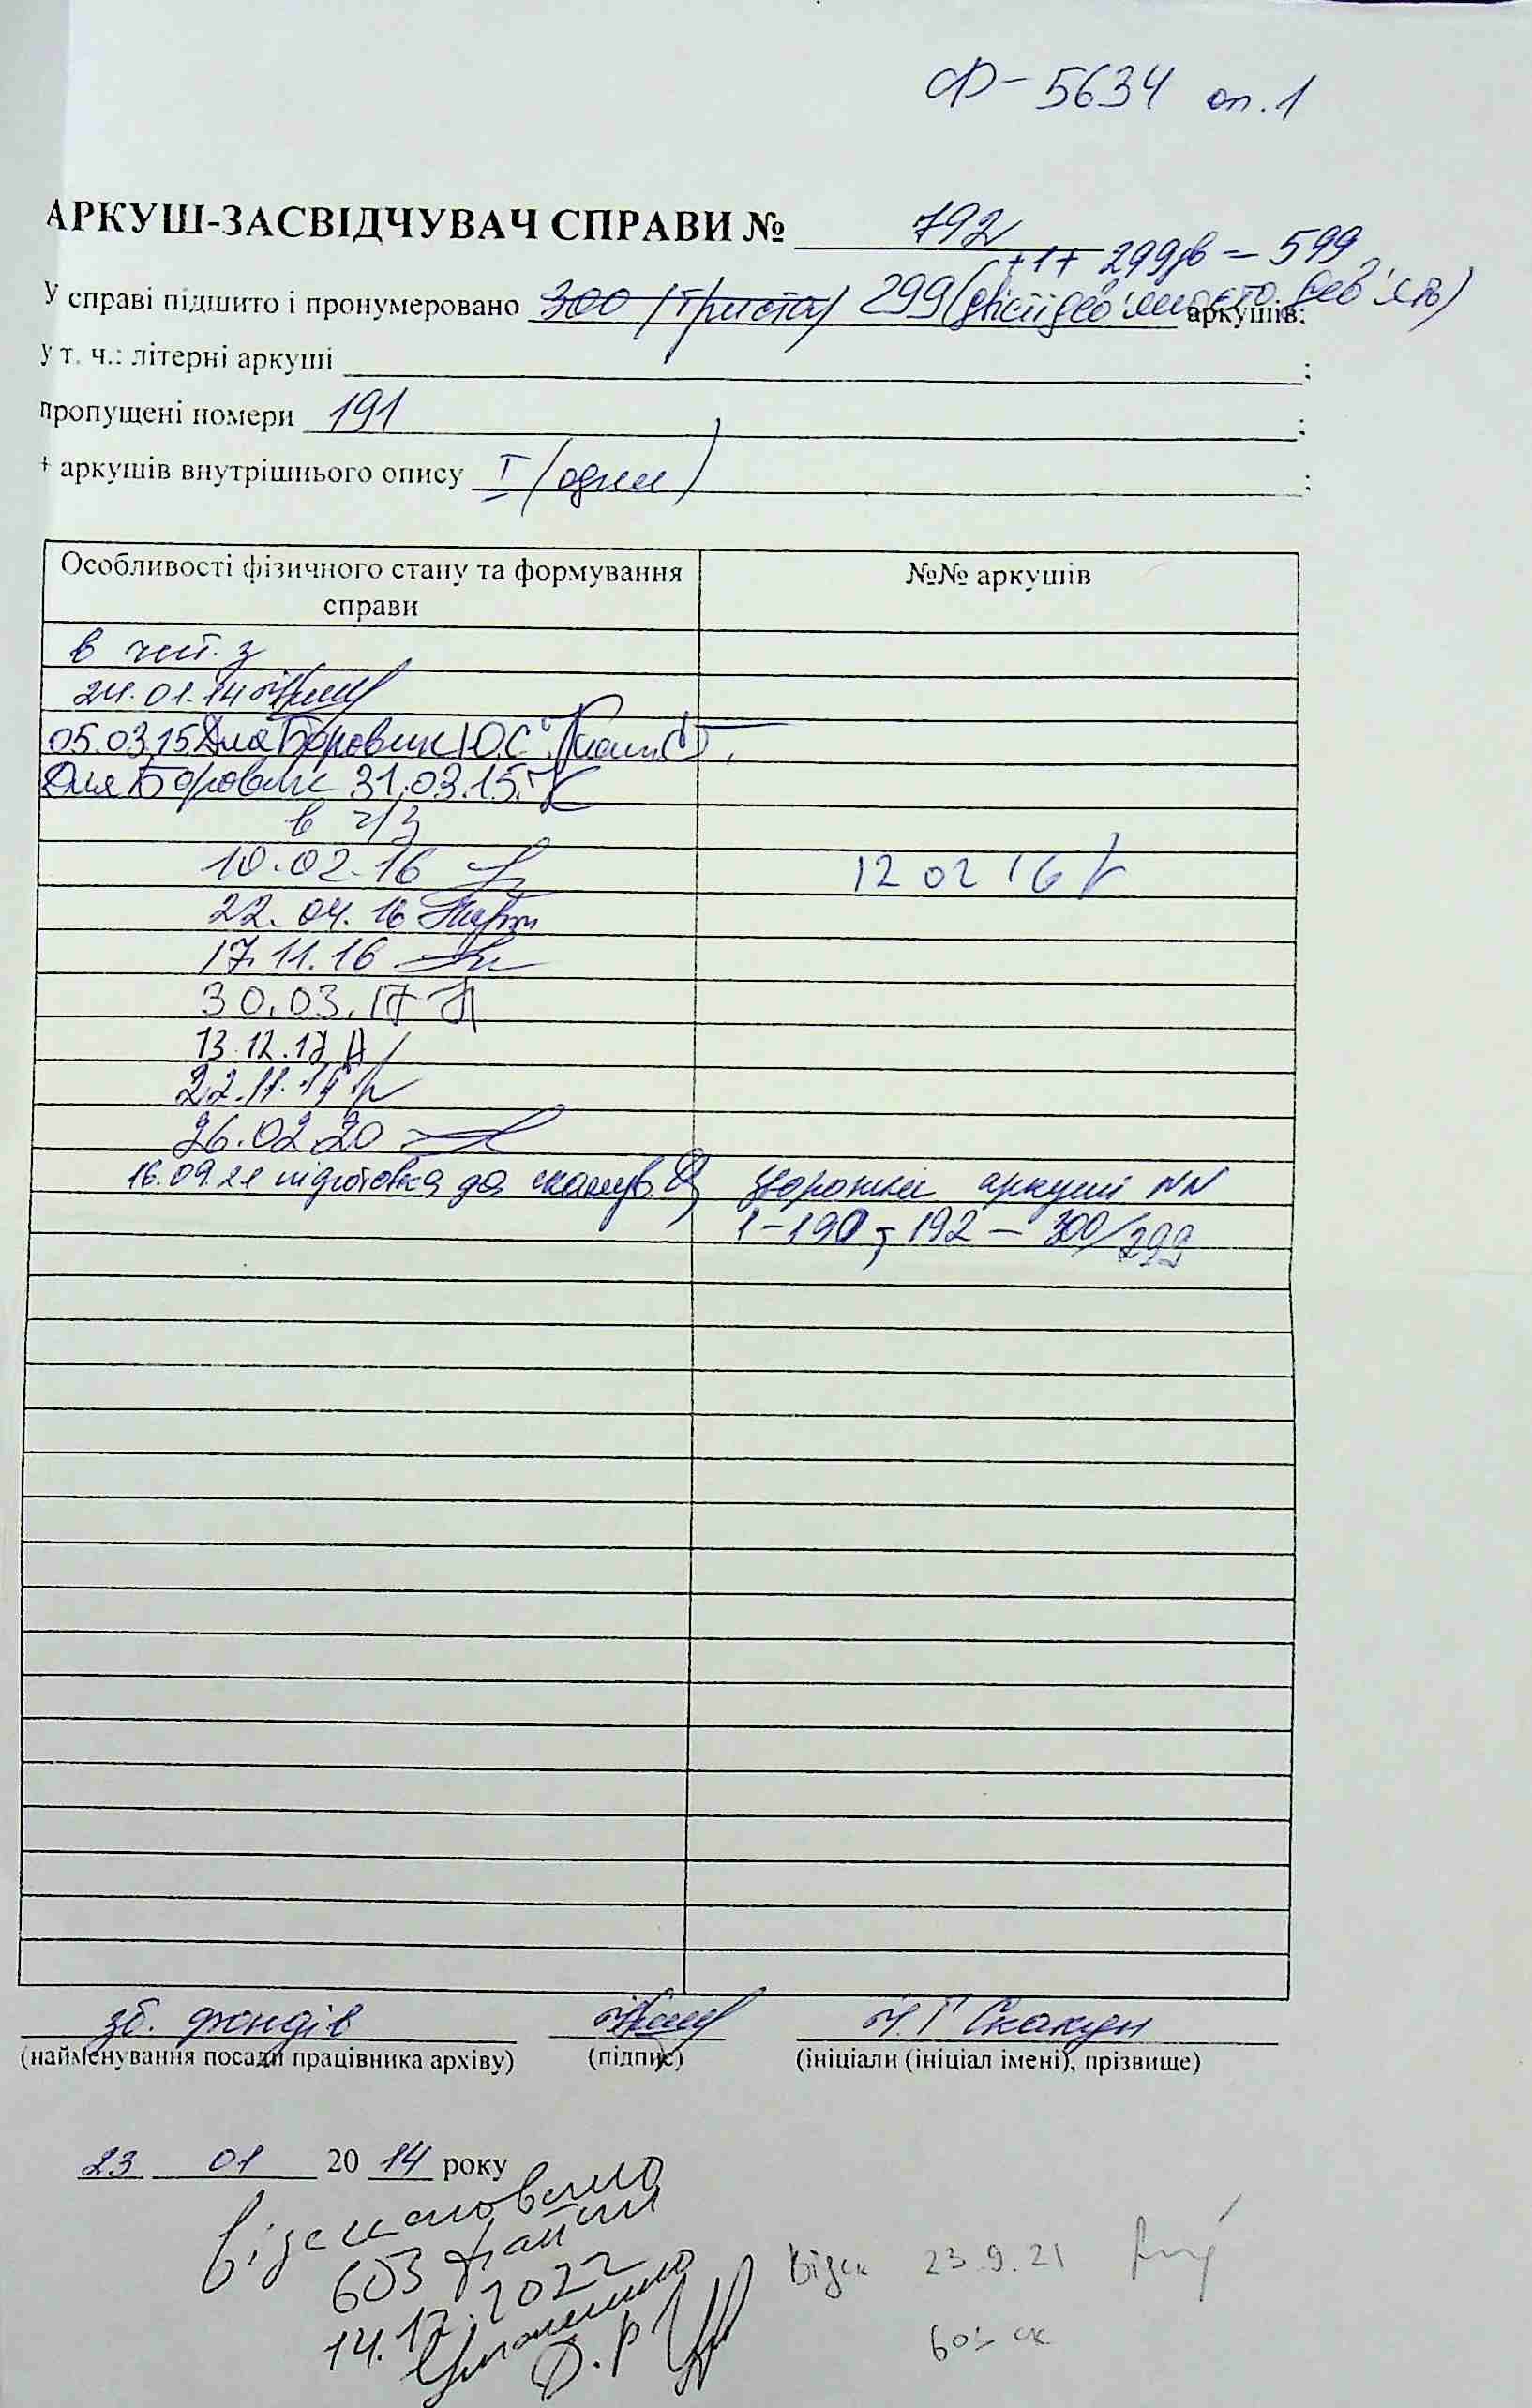 Ф- 5634 оп.1
АРКУШ-ЗАСВІДЧУВАЧ СПРАВИ № 792
+1+ 299зв = 599
У справі підшито і пронумеровано 300 (триста) 299 (двісті дев'яносто дев'ять) аркушів;
у т. ч.: літерні аркуші ;
пропущені номери 191 ;
+ аркушів внутрішнього опису I (один) ;
Особливості фізичного стану та формування справи
№№ аркушів
в чит. з
24.01.14
05.03.15 Для Боровик Ю.С.
Для Боровик 31.03.15.
в ч/з
10.02.16 12 02 16
22.04.16
17.11.16
30.03.17
13.12.17
22.11.
26.02.20
16.09.21 підготовка до сканув. сторонні аркуші NN
1-190, 192 - 300/299
зб. фондів Скакун
(найменування посади працівника архіву) (підпис) (ініціали (ініціал імені), прізвище)
23 01 20 14 року
Відскановано
603 файли
14.12.2022
Відск 23.9.21
603 ск